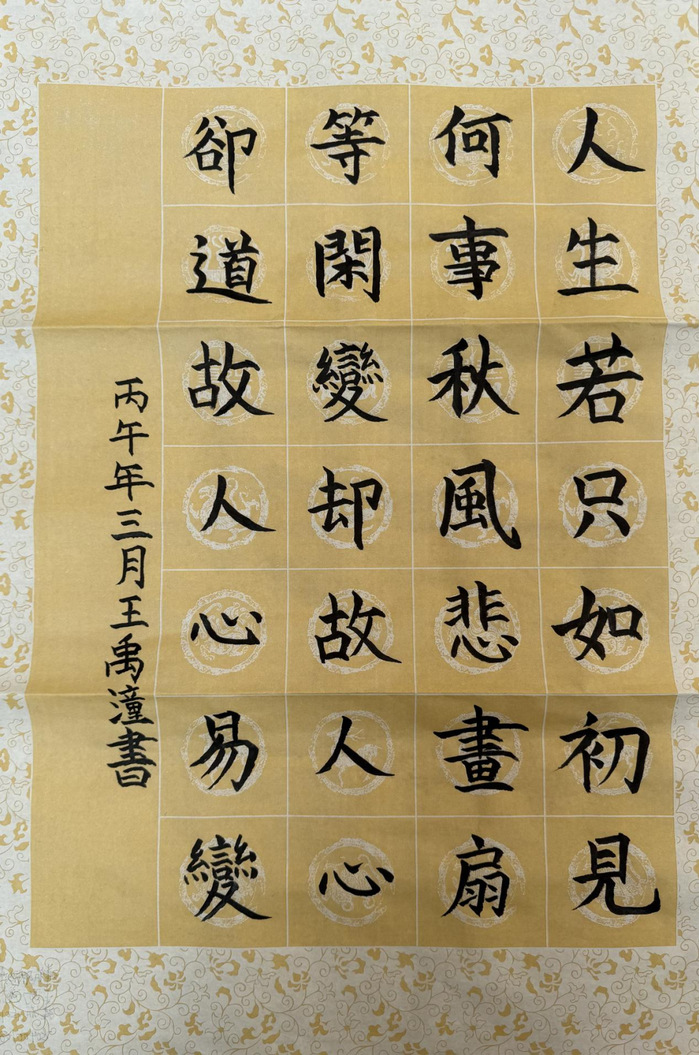 人生若只如初見
何事秋風悲畫扇
等閑變却故人心
卻道故人心易變
丙午年三月王禹潼書